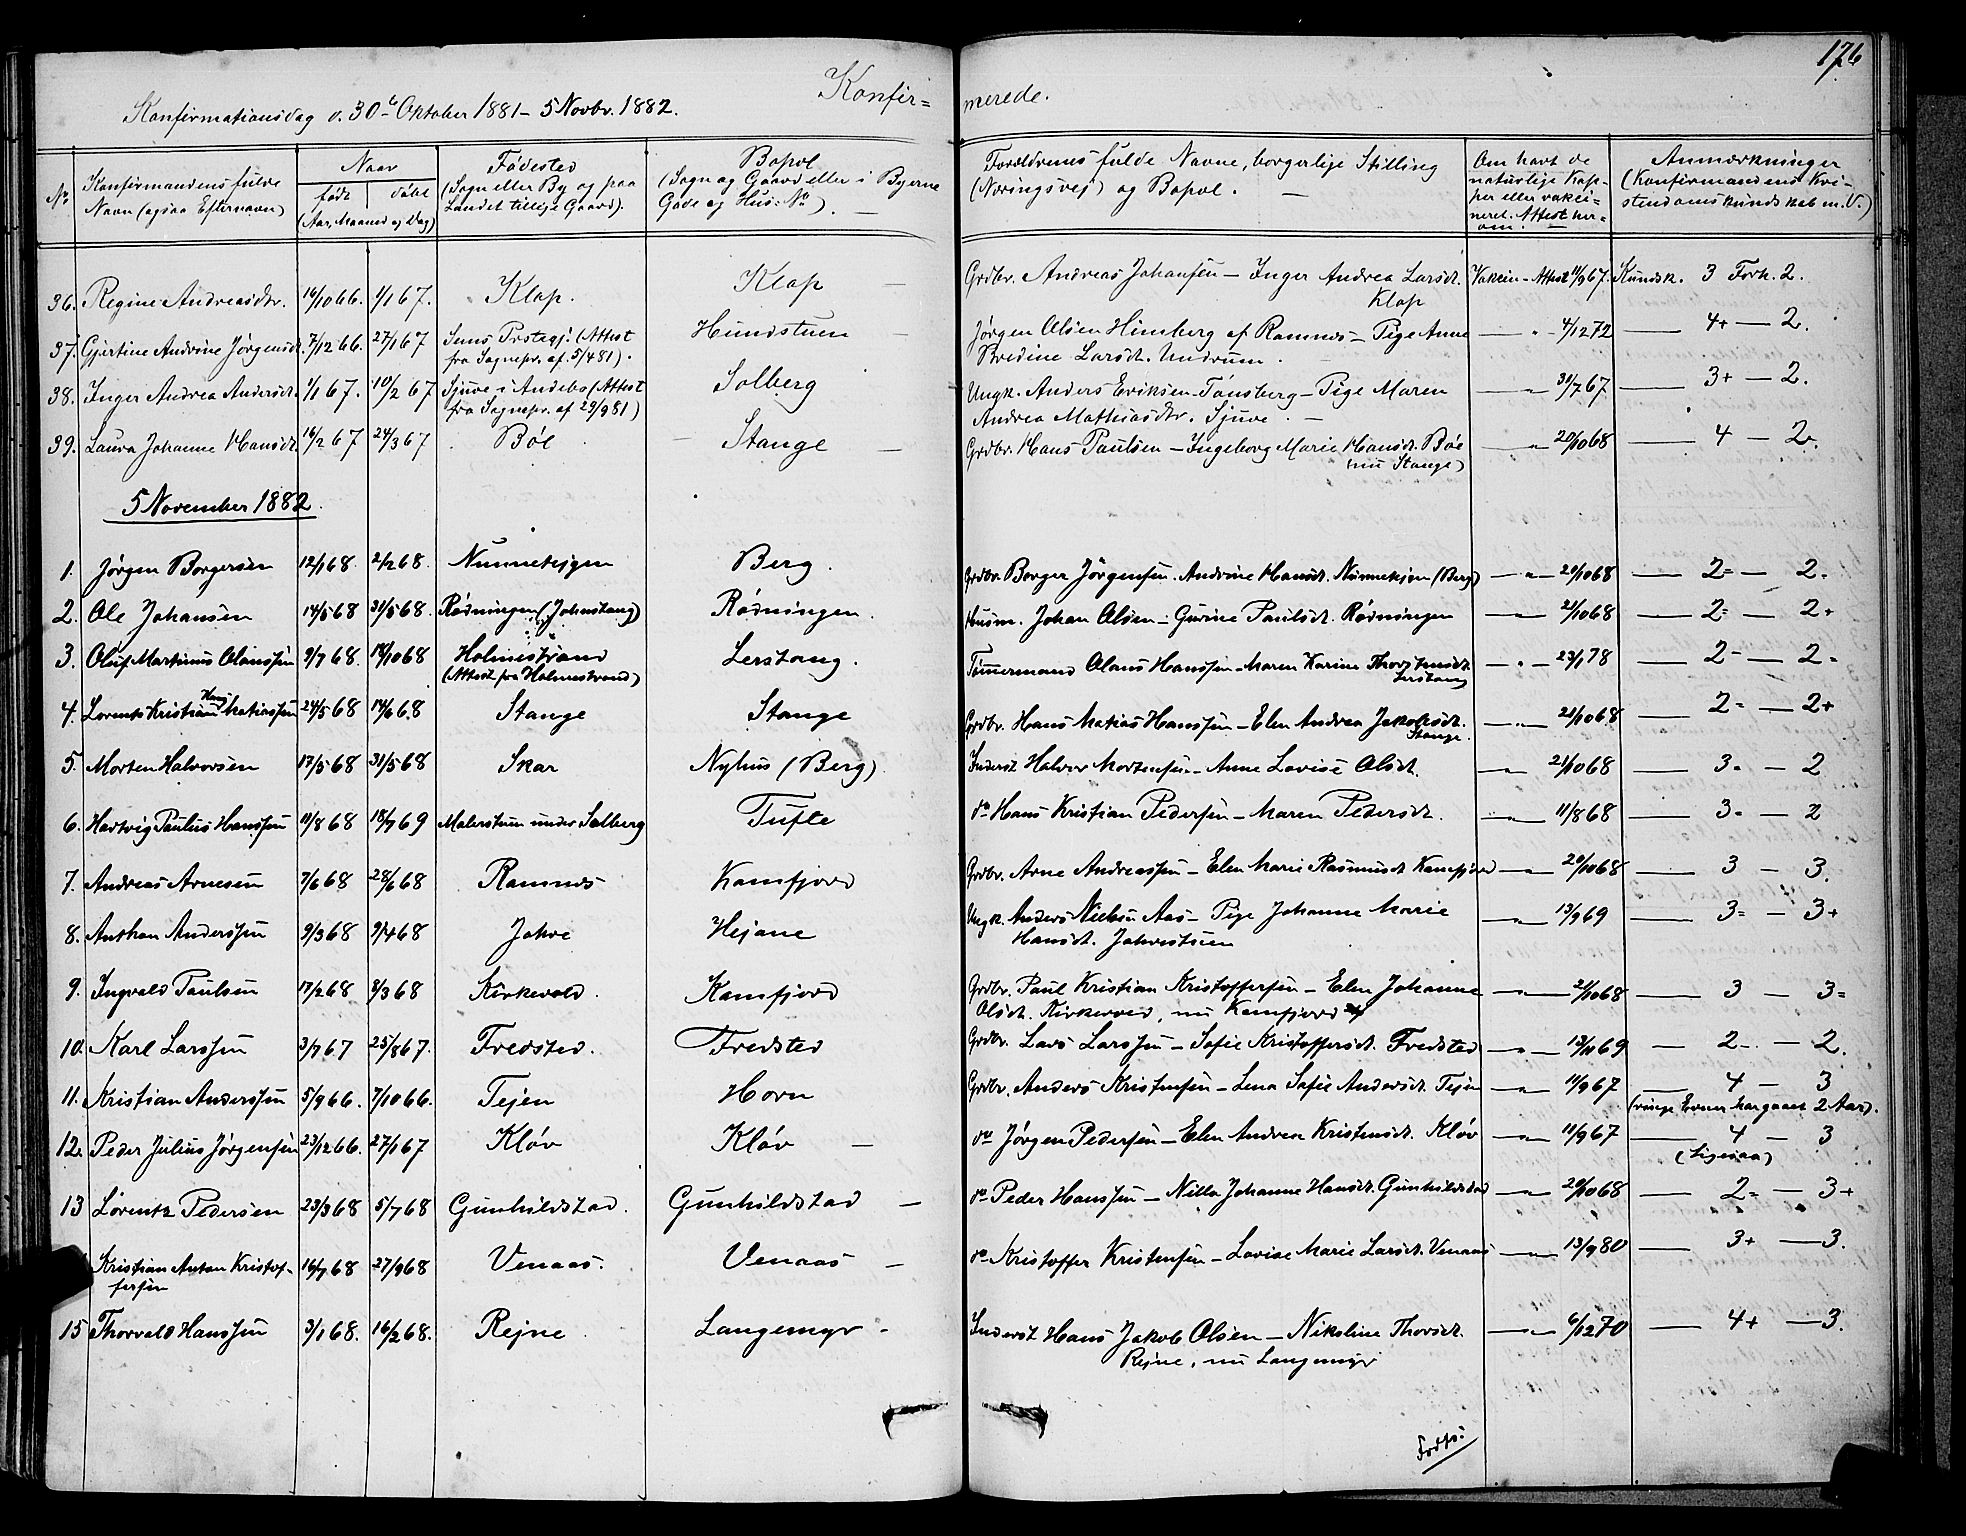 176
Konfir= merede.
Konfirmationsdag d. 30te Oktober 1881 - 5 Novbr. 1882.
No
Konfirmandens fulde Navn (ogsaa Efternavn)
Naar
født | døbt
(Aar, Maaned og Dag)
Fødested
(Sogn eller By og paa
Landet tillige Gaard).
Bopæl
(Sogn og Gaard eller i Byerne
Gade og Hus-No).
Forældrenes fulde Navne, borgerlige Stilling
(Næringsvej) og Bopæl.
Om havt de
naturlige Kop-
per eller vakci-
neret. Attest her-
om.
Anmærkninger
(Konfirmandens Kri-
stendomskundskab m.V.)
36. Regine Andreasdtr. 16/10 66. 1/1 67. Klop. Klop Grdbr. Andreas Johansen - Inger Andrea Larsdt. Vakcin - Attest 11/9 67. Kundsk. 3 Forh. 2.
Klop
37. Gjertine Andrine Jørgensdt. 7/12 66. 27/1 67 Sems Prstegj. (Attest Hundstuen Jørgen Olsen Himberg af Ramnes - Pige Anne — " — 4/12 72 — 4+ — 2.
fra Sognepr. af 5/4 81). Bredine Larsdt. Undrum.
38. Inger Andrea Andersdt. 1/1 67. 10/2 67 Sjuve i Andebo (Attest Solberg Ungk. Anders Eriksen Tønsberg - Pige Maren — " — 31/7 67 — 3+ — 2.
fra Sognepr. af 29/9 81) Andrea Mathiasdtr. Sjuve.
39. Laura Johanne Hansdt. 16/2 67 24/3 67 Bøe Stange Grdbr. Hans Paulsen - Ingeborg Marie Hansdt. Bøe — " — 20/10 68 — 4 — 2.
(nu Stange)
5 November 1882.
1. Jørgen Borgersen 12/1 68. 2/2 68. Nunnekejgen Berg. Grdbr. Borger Jörgensen. Andrine Hansdt. (Berg) — " — 20/10 68 — 2= — 2.
2. Ole Johansen 14/5 68 31/5 68. Rødningen (Johnstang) Rødningen. Husm. Johan Olsen - Gurine Paulsdt. Rødningen — " — 21/10 68 — 2= — 2+
3. Oluf Martinius Olaussen 9/7 68. 18/10 68 Holmestrand Lerstang. Tømermand Olaus Hanssen - Maren Karine — " — 23/1 78 — 2- — 2=
(Attest fra Holmestrand) Lerstang
4. Lorents Kristian Hans Matiassen 24/5 68 14/6 68 Stange Stange Grdbr. Hans Matias Hanssen - Elen Andrea Jakobsdt. — " — 21/10 68 — 2= — 2+
Stange.
5. Morten Halvorsen 17/5 68 31/5 68 Skar Nyhus (Berg) Inderst Halvor Mortensen - Anne Lovise Olsdt. — " — 21/10 68 — 3= — 2
6. Hartvig Paulus Hanssen 11/8 68 18/7 69 Malerstuen under Solberg Tufte do Hans Kristian Pedersen - Maren Pedersdt. — " — 11/8 68 — 3= — 2
7. Andreas Arnesen 7/6 68 28/6 68 Ramnes Kamfjord Grdbr. Arne Andreassen - Elen Marie Rasmusdt. Kamfjord — " — 20/10 68 — 3 — 3.
8. Anthon Anderssen 9/3 68 9/4 68 Johre Hejane Ungk. Anders Nielsen Aas - Pige Johanne Marie — " — 13/9 69 — 3= — 3+
Hansdt. Johrestuen
9. Ingvald Paulsen 17/2 68 8/3 68 Kirkevold. Kamfjord Grdbr. Paul Kristian Kristoffersen - Elen Johanne — " — 21/10 68 — 3 — 3=
Olsdt. Kirkevold, nu Kamfjord
10. Karl Larssen 3/7 67 25/8 67. Fredsted. Fredsted Grdbr. Lars Larssen - Sofie Kristoffersdt. Fredsted — " — 13/11 69 — 2- — 2.
11. Kristian Anderssen 5/9 66. 7/10 66. Tejen Horn Grdbr. Anders Kristensen - Lena Sofie Andersdt. Tejen — " — 11/9 67 — 4 — 3
(ringe Evner har gaaet 2 Aar).
12. Peder Julius Jørgensen 23/12 66. 27/1 67 Kløv Kløv do Jørgen Pedersen - Elen Andrea Kristensdt. Kløv — " — 11/9 67 — 4 — 3
(Ligesaa)
13 Lorentz Pedersen 23/3 68 5/7 68 Gunhildstad. Gunhildstad do Peder Hanssen - Nilla Johanne Hansdt. Gunhildstad — " — 20/10 68 — 2= — 3+
Kristian Anton Kristof- 16/7 68 27/9 68 Venaas. Venaas do Kristoffer Kristensen - Lovise Marie Larsdt. Venaas — " — 13/9 80 — 3+ — 3.
fersen
15 Thorvald Hanssen 3/1 68. 16/2 68. Rejne Langemyr - Inderst Hans Jakob Olsen - Nikoline Thorsdt. — " — 6/12 70 — 4+ — 3.
Rejne, nu Langemyr
Forts: